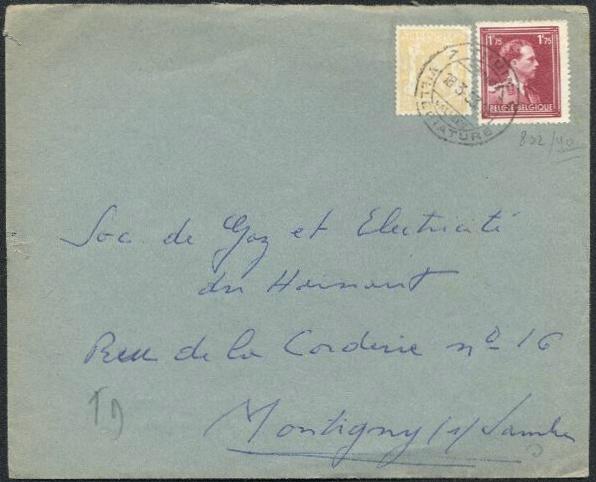 1F75 1F75
BELGIE-BELGIQUE
VILLEGIATURE
802/40
Soc. de Gaz et Electricité
du Hainaut
Reu de la Corderie nº 16
Montigny (s/Sambre
TD